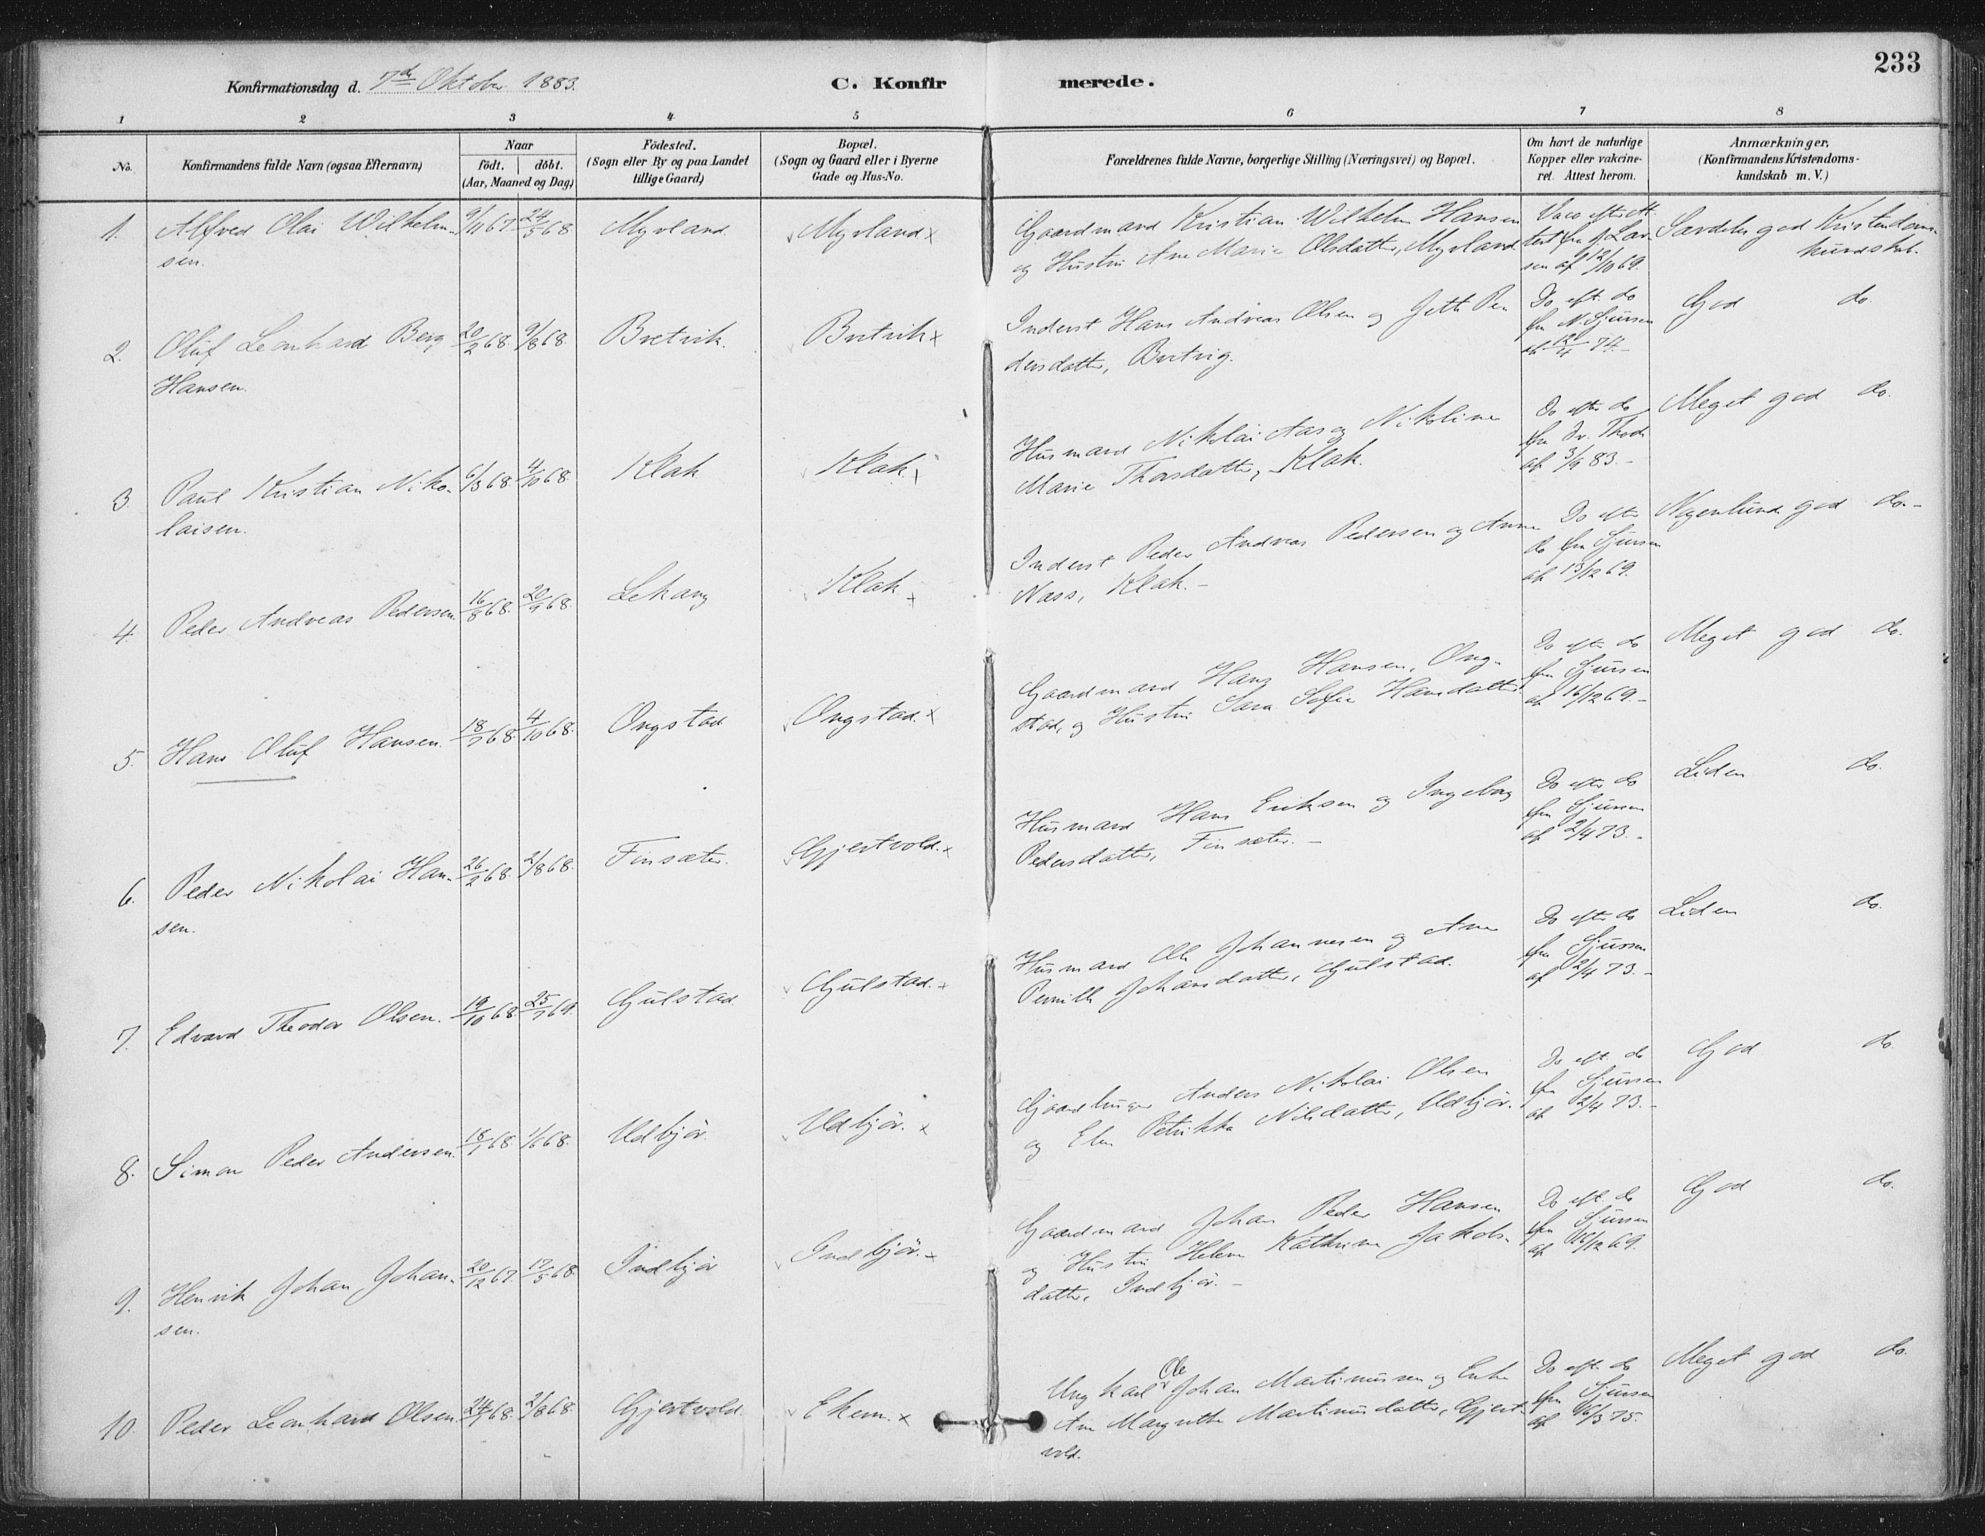 233
Konfirmationsdag d. 7de Oktober 1883.
C. Konfirmerede.
1 2 3 4 5 6 7 8
No.
Konfirmandens fulde Navn (ogsaa Efternavn)
Naar
födt. döbt.
(Aar, Maaned og Dag)
Födested.
(Sogn eller By og paa Landet
tillige Gaard)
Bopæl.
(Sogn og Gaard eller i Byerne
Gade og Hus-No.
Forældrenes fulde Navne, borgerlige Stilling (Næringsvei) og Bopæl.
Om havt de naturlige
Kopper eller vakcine-
ret. Attest herom.
Anmærkninger.
(Konfirmandens Kristendoms-
kundskab m. V.)
1. Alfred Olai Wilhelm- 9/11 67 24/5 68 Myrland Myrland x Gaardmand Kristian Wilhelm Hansen Vacc efter At- Særdeles god Kristendoms-
sen. og Hustru Ane Marie Olsdatter, Myrland test fra J. Lar- kundskab.
sen af 12/10 69.
2. Oluf Leonhard Berg 20/2 68 9/8 68 Bretvik. Bretvik x Inderst Hans Andreas Olsen og Jette Pe- Do eft. do God do.
Hansen. dersdatter, Bretvig. fra N. Sjursen
af 12/4 74.-
3. Paul Kristian Niko- 6/3 68. 4/10 68. Klak Klak x Husmand Nikolai Aas og Nikoline Do efter do Meget god do.
laisen. Marie Thorsdatter, Klak. fra Dr. Thode
af 3/9 83.-
4. Peder Andreas Pedersen. 16/8 68. 20/9 68. Lekang Klak x Inderst Peder Andreas Pedersen og Anne Do efter Nogenlunde god do.-
Næss, Klak.- do fra Sjursen
af 13/12 69.
5. Hans Oluf Hansen. 18/7 68. 4/10 68. Ongstad Ongstad. x Gaardmand Hans Hansen, Ong- Do efter do Meget god do.
stad, og Hustru Sara Sofie Hansdatter fra Sjursen
af 16/12 69.-
6. Peder Nikolai Han- 26/2 68. 2/8 68. Finsæter. Gjertvold. x Husmand Hans Eriksen og Ingeborg Do efter do Liden do.
sen. Pedersdatter, Finsæter.- fra Sjursen
af 2/4 73.-
7. Edvard Theodor Olsen. 19/10 68. 25/7 69. Gulstad Gulstad. x Husmand Ole Johannesen og Ane Do efter do Liden do.
Pernille Johansdatter, Gulstad. fra Sjursen
af 2/4 73.-
8. Simon Peder Andersen. 18/1 68. 1/6 68. Udbjör. Udbjör. x Gaardbruger Anders Nikolai Olsen Do eft. do God do.
og Elen Petrikka Nilsdatter, Udbjör. fra Sjursen
af 2/4 73.-
9. Henrik Johan Johan- 20/12 67. 17/5 68. Indbjör Indbjör. x Gaardmand Johan Peder Hansen Do eft. do God do.
sen. og Hustru Helene Kathrine Jakobs- fra Sjursen
datter, Indbjör.- af 16/12 69.
10. Peder Leonhard Olsen. 24/7 68. 2/8 68. Gjertvold. Ekem. x Ungkarl Ole Johan Martinussen og Enke Do eft. do Meget god do.
Ane Margrethe Martinusdatter, Gjert- fra Sjursen
vold. af 16/3 75.